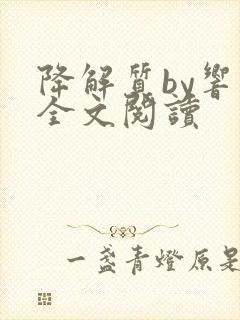 降解質by響
全文閱讀
一盞青燈原是